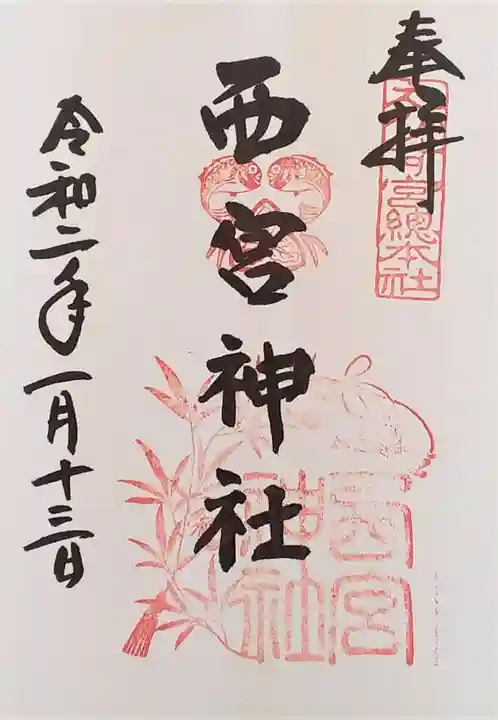 奉拝
宮總本社
西宮神社
西宮
神社
令和二年一月十三日